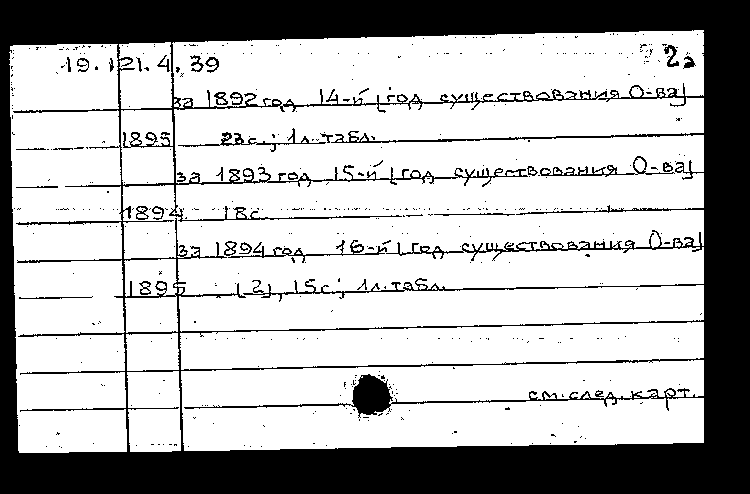 19.121.4.39 2а
за 1892 год 14-й [год существования О-ва]
1895 23с.; 1л. табл.
за 1893 год 15-й [год существования О-ва]
1894 18с.
за 1894 год 16-й [год существования О-ва]
1895 [2], 15с.; 1л. табл.
см. след. карт.